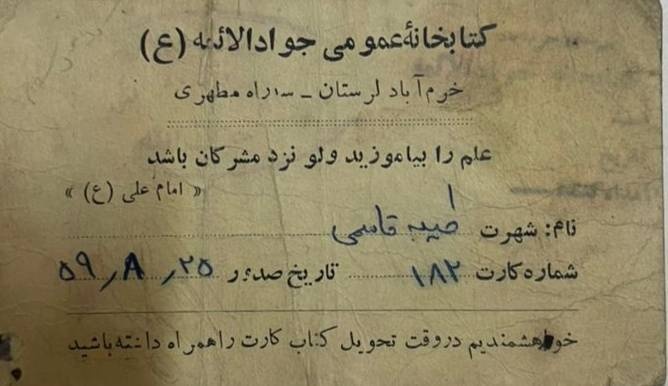 کتابخانهٔ عمومی جوادالائمه (ع)
خرم‌آباد لرستان ـ سه‌راه مطهری
علم را بیاموزید ولو نزد مشرکان باشد
« امام علی (ع) »
نام: شهرت قاسمی
شماره کارت ۱۸۲ تاریخ صدور ۲۵ ر ۸ ر ۵۹
خواهشمندیم دروقت تحویل کتاب کارت راهمراه داشته‌باشید